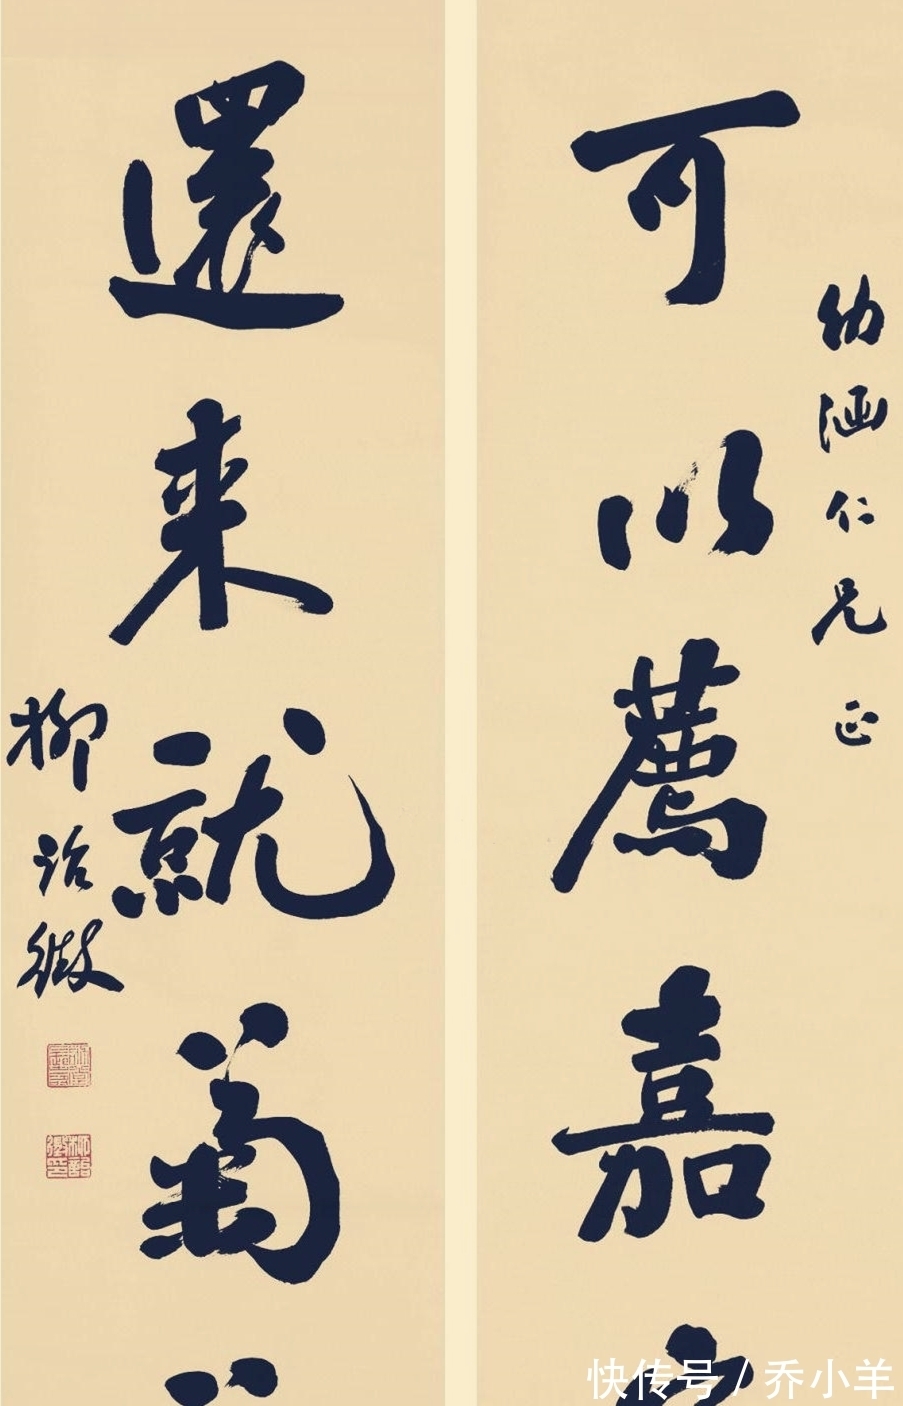 幼涵仁兄正
可以薦嘉
還來就菊
柳詒徵
快传号 / 乔小羊